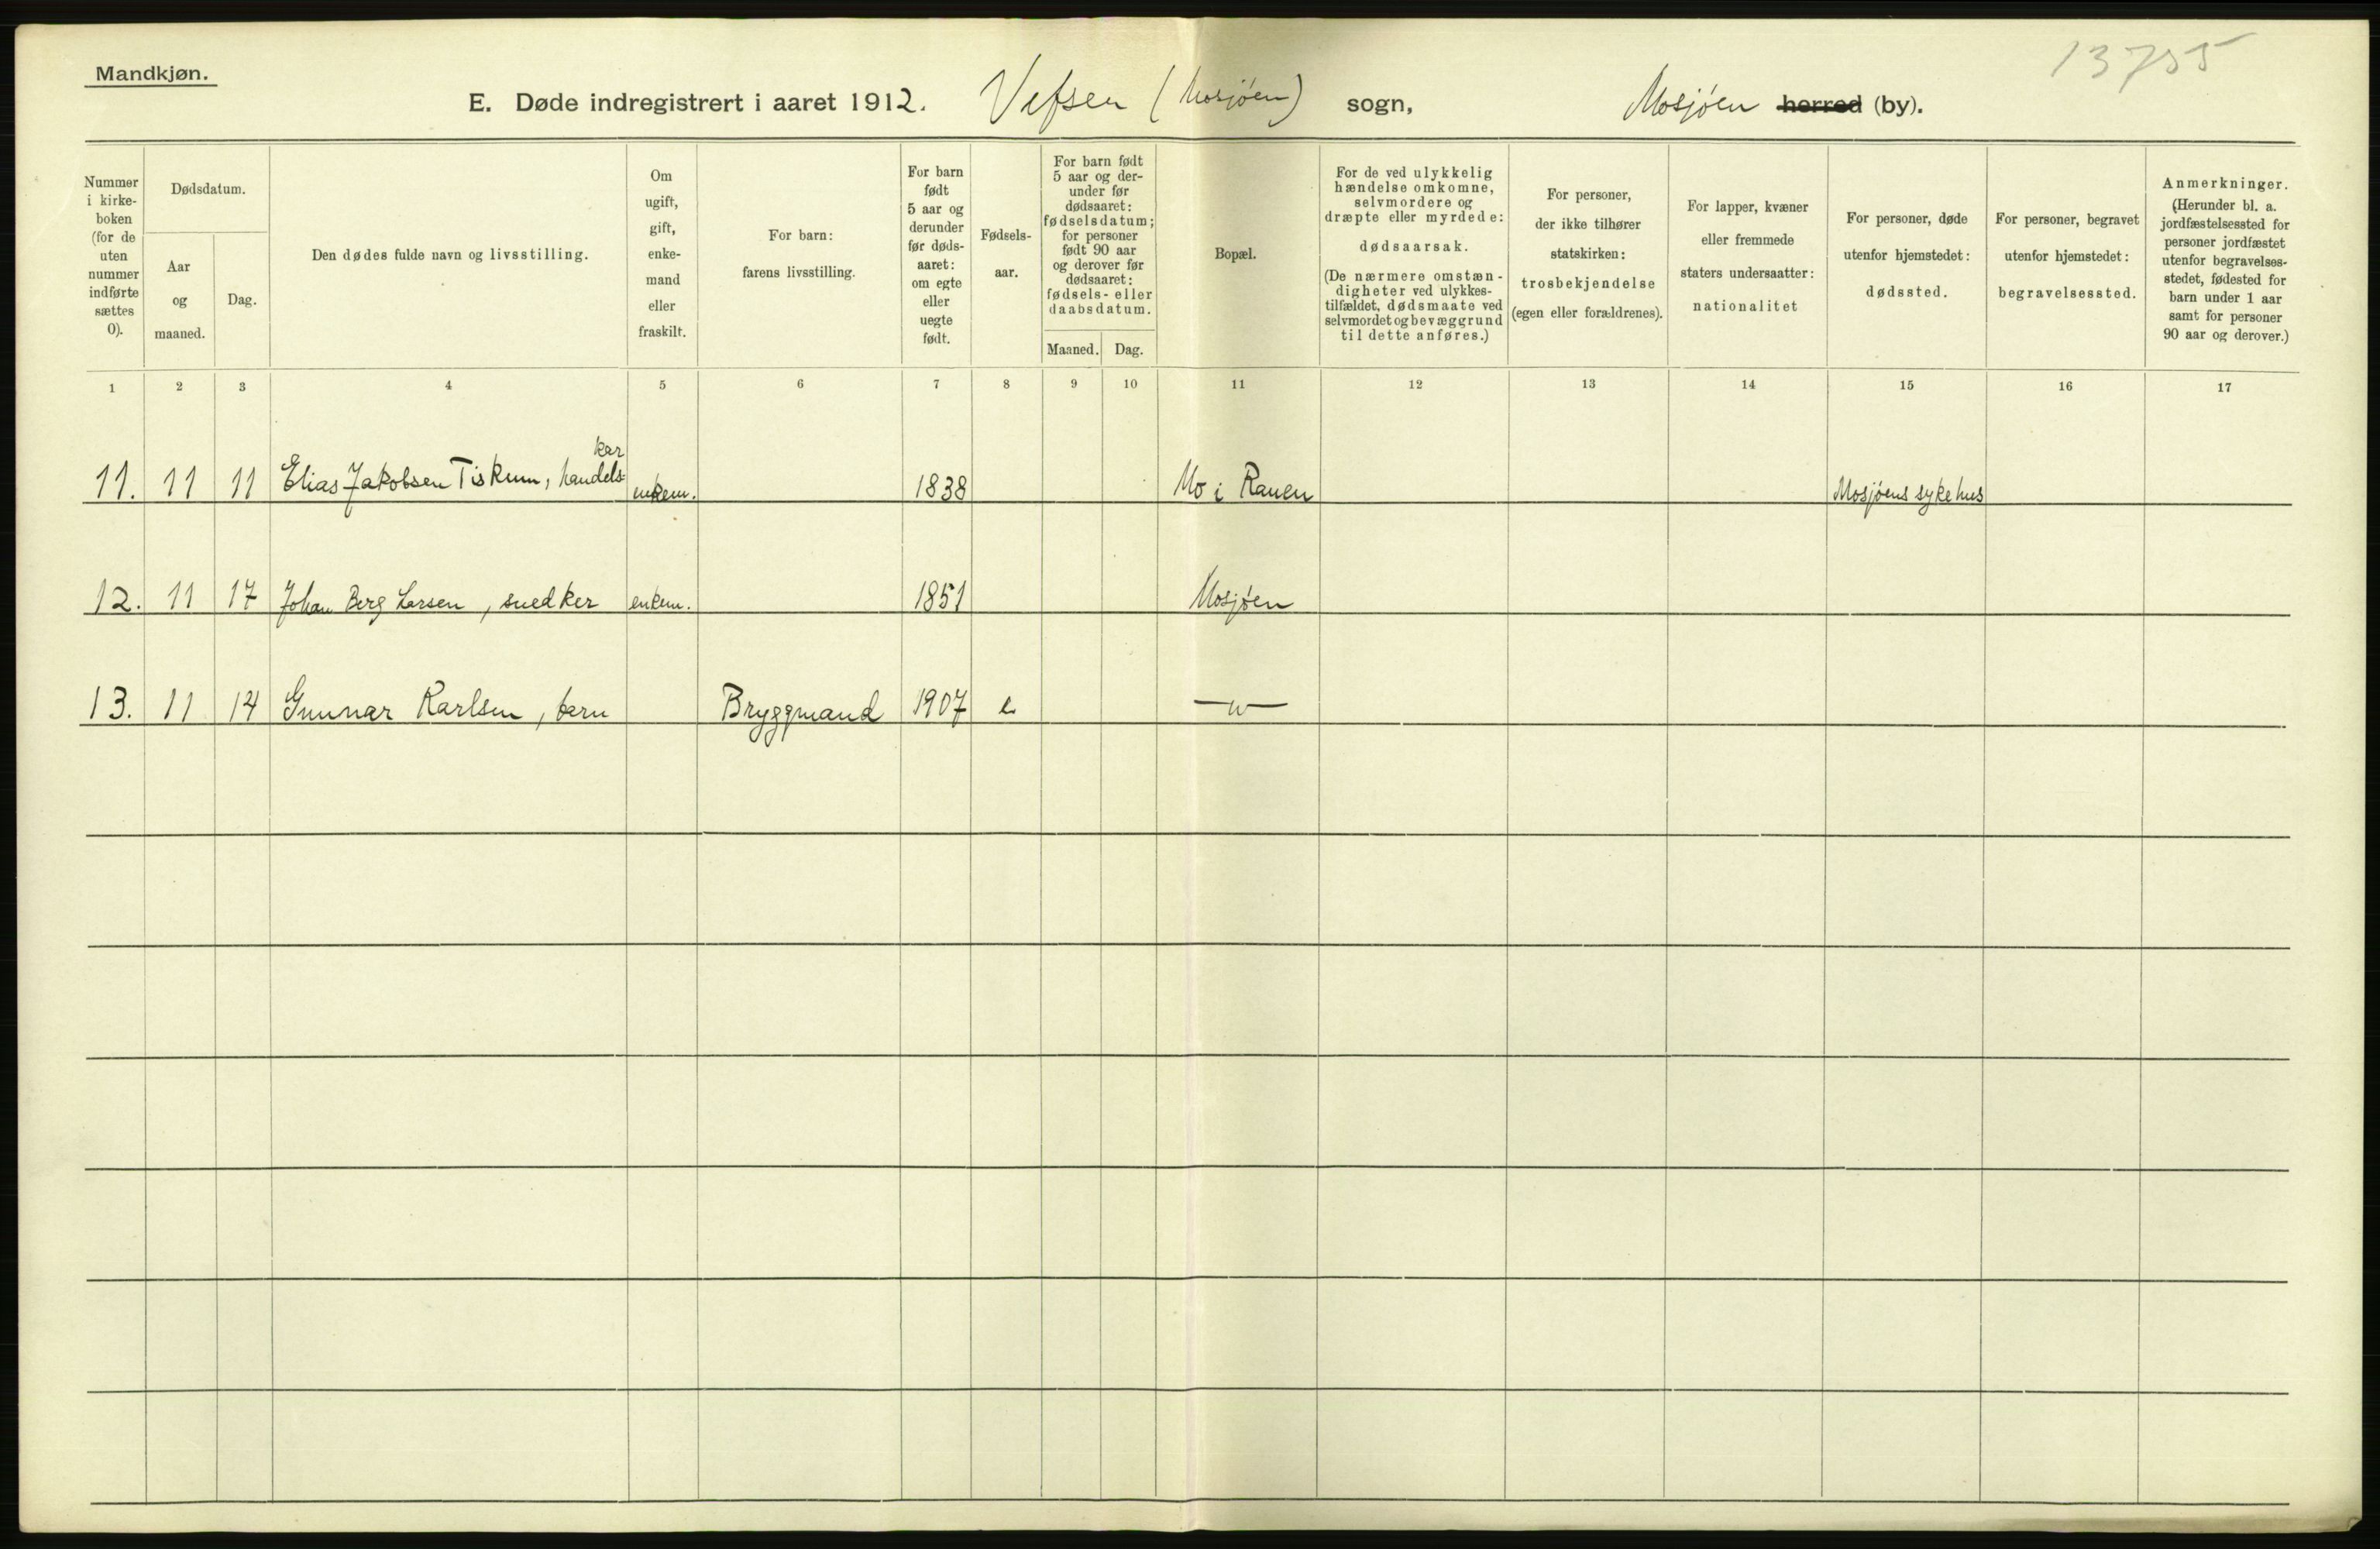 13755
Mandkjøn.
E. Døde indregistrert i aaret 1912. Vefsen (Mosjøen) sogn, Mosjøen herred (by).
Nummer i kirke-boken (for de uten nummer indførte sættes 0).
Dødsdatum.
Aar og maaned.
Dag.
Den dødes fulde navn og livsstilling.
Om ugift, gift, enke-mand eller fraskilt.
For barn: farens livsstilling.
For barn født 5 aar og derunder før døds-aaret: om egte eller uegte født.
Fødsels-aar.
For barn født 5 aar og der-under før dødsaaret: fødselsdatum; for personer født 90 aar og derover før dødsaaret: fødsels- eller daabsdatum.
Maaned. Dag.
Bopæl.
For de ved ulykkelig hændelse omkomne, selvmordere og dræpte eller myrdede: dødsaarsak. (De nærmere omstæn-digheter ved ulykkes-tilfældet, dødsmaate ved selvmordet og bevæggrund til dette anføres.)
For personer, der ikke tilhører statskirken: trosbekjendelse (egen eller forældrenes).
For lapper, kvæner eller fremmede staters undersaatter: nationalitet
For personer, døde utenfor hjemstedet: dødssted.
For personer, begravet utenfor hjemstedet: begravelsessted.
Anmerkninger. (Herunder bl. a. jordfæstelsessted for personer jordfæstet utenfor begravelses-stedet, fødested for barn under 1 aar samt for personer 90 aar og derover.)
1 2 3 4 5 6 7 8 9 10 11 12 13 14 15 16 17
kar
11. 11 11 Elias Jakobsen Tiskum, handels- enkem. 1838 Mo i Ranen Mosjøens sykehus
12. 11 17 Johan Berg Larsen, snedker enkem. 1851 Mosjøen
13. 11 14 Gunnar Karlsen, barn Bryggmand 1907 e —"—